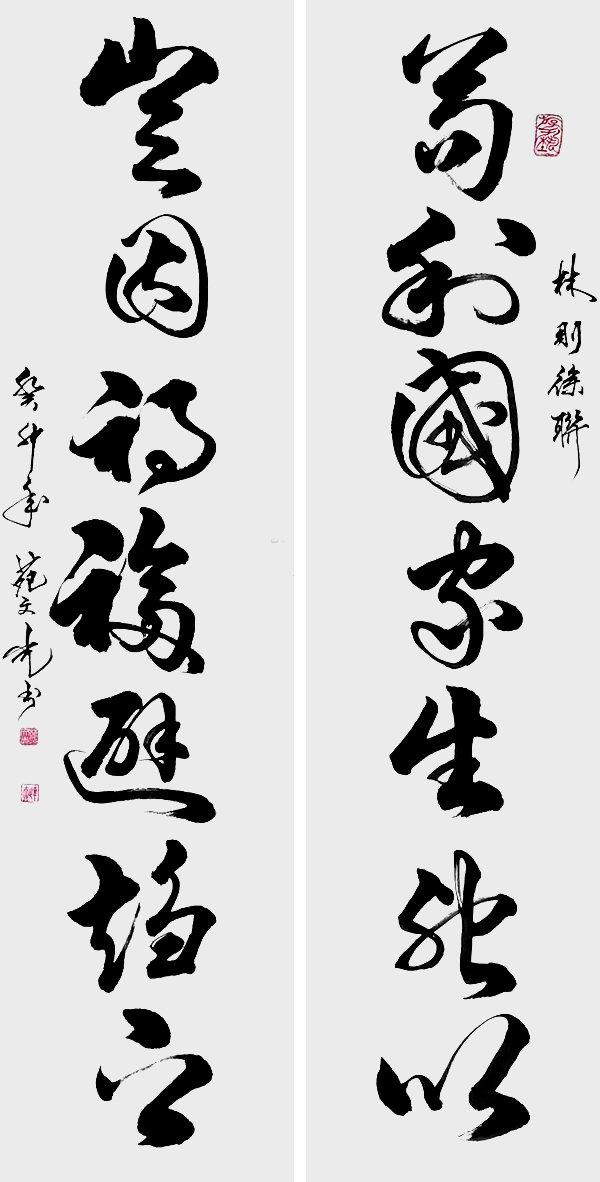 林則徐聯
苟利國家生死以
豈因禍福避趨之
癸卯年 范文光书